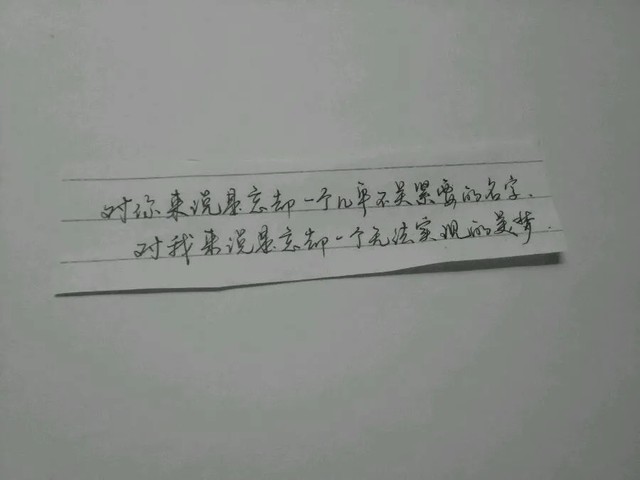 对你来说是忘却一个几乎不关紧要的名字.
对我来说是忘却一个无法实现的美梦.